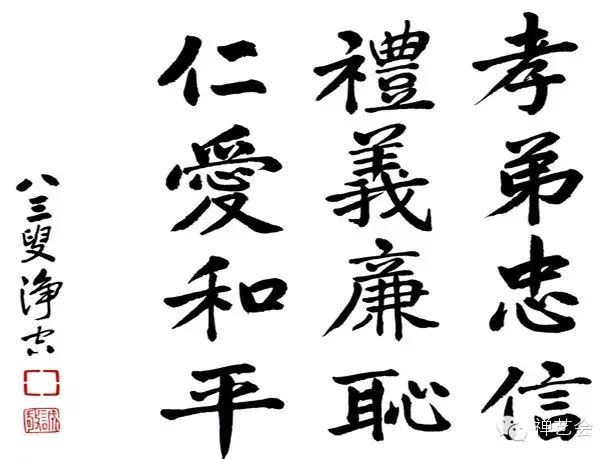 孝弟忠信
禮義廉恥
仁愛和平
八三叟淨空
禅艺会